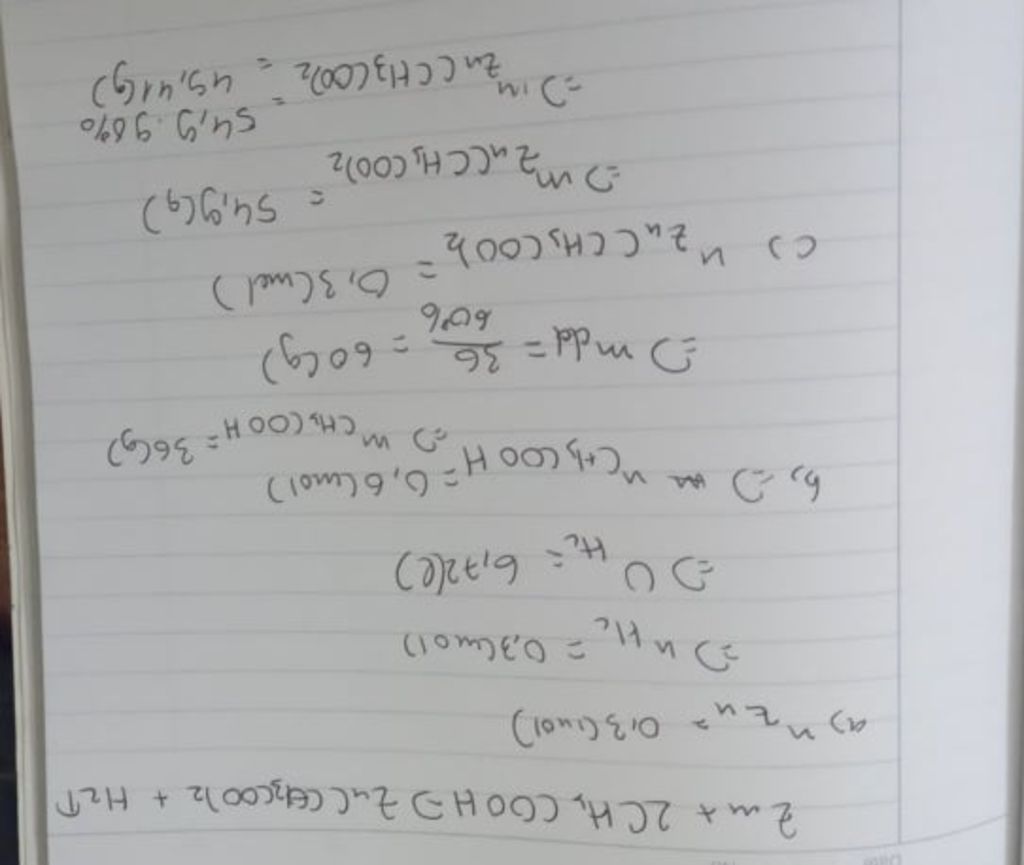 Zn + 2CH3COOH => Zn(CH3COO)2 + H2↑
a) nZn = 0,3(mol)
=> nH2 = 0,3(mol)
=> VH2 = 6,72(l)
b, => nCH3COOH = 0,6(mol)
=> mCH3COOH = 36(g)
=> mdd = 36/60% = 60(g)
c) nZn(CH3COO)2 = 0,3(mol)
=> mZn(CH3COO)2 = 54,9(g)
=> mZn(CH3COO)2 = 54,9.90% = 49,41(g)